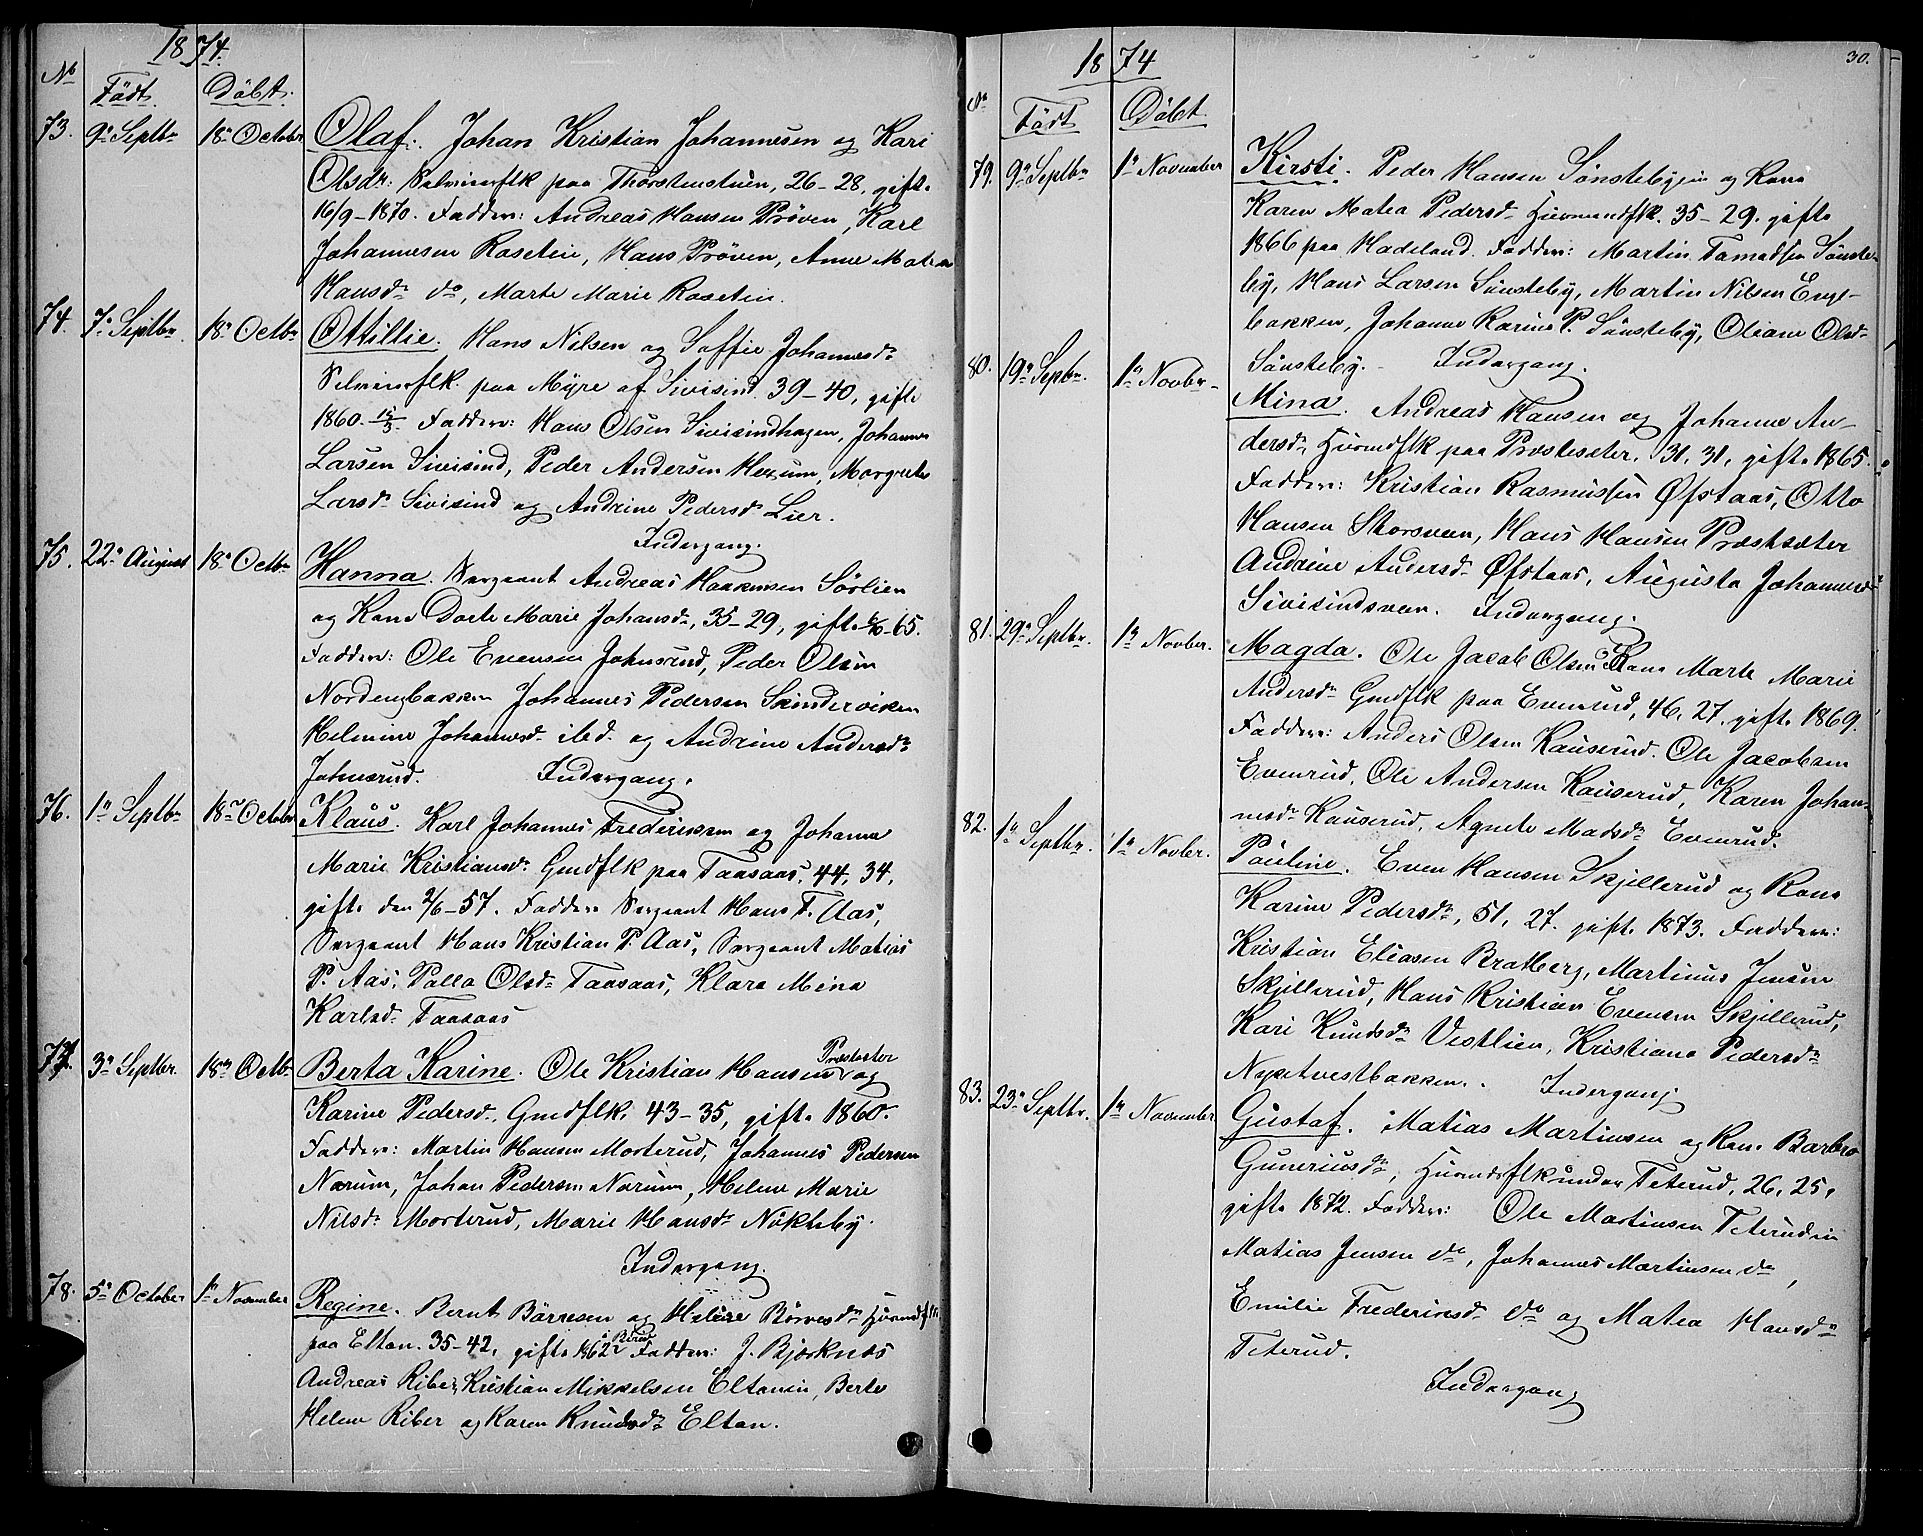 1874.
No Födt. Döbt.
73. 9de Septbr 18de October Olaf. Johan Kristian Johannesen og Kari
Olsdr. Selveierflk paa Thorstenstuen, 26-28, gifte
16/9-1870. Faddere: Andreas Hansen Pröven, Karl
Johannesen Roseteie, Hans Pröven, Anne Matea
Hansdr do, Marte Marie Rosetein.
74. 7de Septbr 18de Octbr Ottillie. Hans Nilsen og Soffie Johannesdr
Selveierflk. paa Myre af Sivisind 39-40, gifte
1860. Faddere: Hans Olsen Sivisindhagen, Johannes
Larsen Sivisind, Peder Andersen Hexum, Margrethe
Larsdr Sivisind og Andrine Pedersdr Lier.
Indergang.
75. 22de August 18de Octbr Hanna. Sergeant Andreas Haakensen Sörlien
og Kone Dorte Marie Johansdr, 35-29, gifte -65.
Faddere: Ole Evensen Johnsrud, Peder Olsen
Nordengbakken Johannes Pedersen Skinderviken
Helmine Johannesdr ibd. og Andrine Andersdr
Johnsrud. Indergang.
76. 1ste Septbr 18de October Klaus. Karl Johannes Frederiksen og Johanne
Marie Kristiansdr Gmdflk paa Taasaas, 44, 34,
gifte den 2/6-57. Faddere Sergeant Hans F. Aas,
Sergeant Hans Kristian P. Aas, Sergeant Matias
P. Aas, Palla Olsdr Taasaas, Klara Mina
Karlsdr Taasaas
77. 3de Septbr. 18de Octbr Berta Karine. Ole Kristian Hansen Præstseter og
Karine Pedersdr. Gmdflk. 43-35, gifte 1860.
Faddere: Martin Hansen Morterud, Johannes Pedersen
Narum, Johan Pedersen Narum, Helene Marie
Nilsdr Morterud, Marie Hansdr Nökleby.
Indergang.
78. 5te October 1ste November Regine. Bernt Börresen og Helene Börresdr Huusmdflk
paa Elton. 35-42, gifte 1862 Faddere: J. Bjerknæs
Andreas Riber, Kristian Mikkelsen Eltonein, Berte
Helene Riber og Karen Knudsdr Elton.
30.
1874
No Födt Döbt.
79. 9de Septbr 1ste November Kirsti. Peder Hansen Sönstebyein og Kone
Karen Matea Pedersdr Huusmandflk. 35-29. gifte
1866 paa Hadeland. Faddere: Martin Tomassen Sönste-
by, Hans Larsen Sönsteby, Martin Nilsen Enge-
bakken, Johanne Karine P. Sönsteby, Oliane Olsdr
Sönsteby. Indergang.
80. 19de Septbr. 1ste Novbr Mina. Andreas Hansen og Johanne An-
dersdr, Huusmdflk paa Præstesæter. 31, 31, gifte 1865.
Faddere: Kristian Rasmussen Öfstaas, Otto
Hansen Storsveen, Hans Hansen Præstsæter
Andrine Andersdr Öfstaas, Augusta Johannesdr
Sivisindsveen. Indergang.
81. 29de Septbr. 1ste Novber. Magda. Ole Jacob Olsen og Kone Marte Marie
Andersdr Gmdflk paa Evenrud, 46, 27. gifte 1869.
Faddere: Anders Olsen Kauserud. Ole Jacobsen
Evenrud, Ole Andersen Kauserud, Karen Johan-
nesdr Kauserud, Agnete Madsdr Evenrud.
82. 1ste Septbr. 1ste Novber. Pauline. Even Hansen Skjellerud og Kone
Karine Pedersdr, 51, 27. gifte 1873. Faddere:
Kristian Eliasen Bratberg, Martinus Jensen
Skjellerud, Hans Kristian Evensen Skjellerud,
Kari Knudsdr Vestlien, Kristiane Pedersdr
Indergang
83. 23de Septbr. 1ste November Gustaf. Matias Martinsen og Kone Barbro
Guneriusdr, Huusmdsflk under Teterud, 26, 25,
gifte 1872. Faddere: Ole Martinsen Teterudein
Matias Jensen do, Johannes Martinsen do,
Emilie Frederiksdr do og Matea Hansdr
Teterud.
Indergang